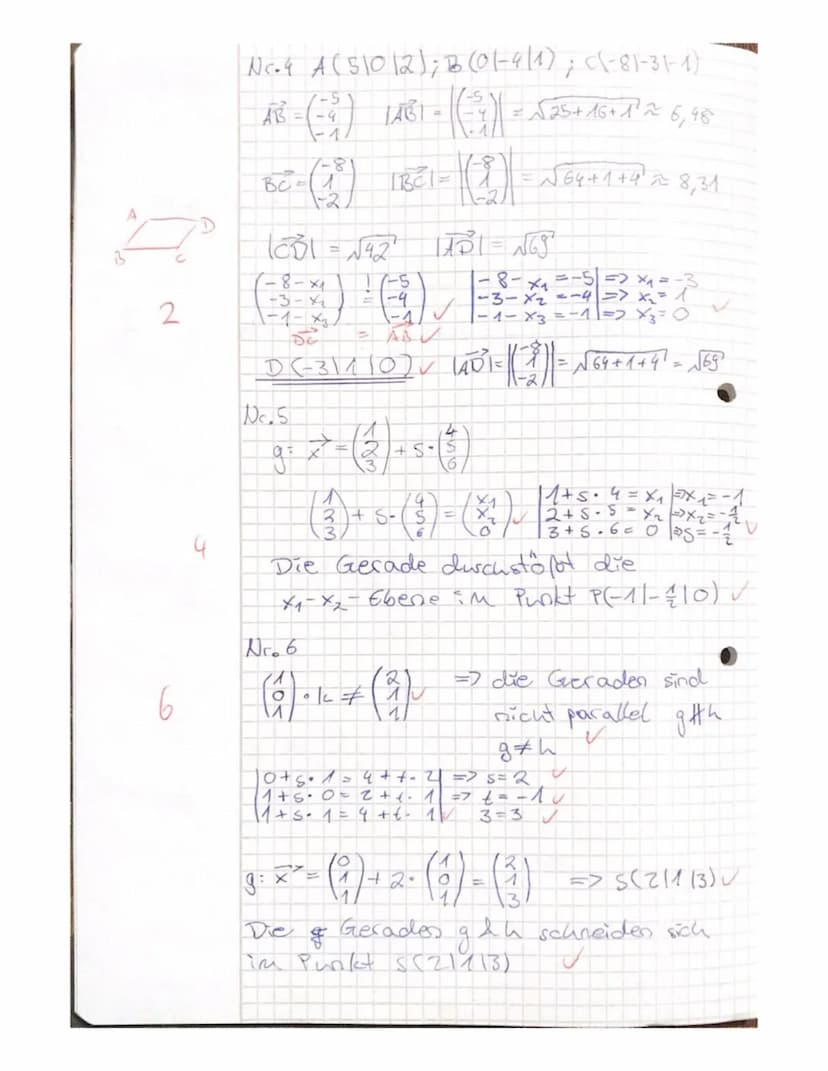 Nr.4 A(5|0|2); B(0|-4|1); C(-8|-3|-1)
AB→ = (-5 -4 -1) |AB→| = |(-5 -4 -1)| = √25+16+1 ≈ 6,48
BC→ = (-8 1 -2) |BC→| = |(-8 1 -2)| = √64+1+4 ≈ 8,31
A D B C
|CD→| = √42 |AD→| = √69
(-8-x₁ -3-x₂ -1-x₃) != (-5 -4 -1) ✓ |-8-x₁ = -5| => x₁ = -3
|-3-x₂ = -4| => x₂ = 1
|-1-x₃ = -1| => x₃ = 0 ✓
2
DC→ = AB→ ✓
D(-3|1|0) ✓ |AD→| = |(-8 1 -2)| = √64+1+4 = √69
Nr.5
g: x→ = (1 2 3) + s·(4 5 6)
(1 2 3) + s·(4 5 6) = (x₁ x₂ 0) ✓ |1+s·4 = x₁ |=> x₁ = -1
|2+s·5 = x₂ |=> x₂ = -1/2
|3+s·6 = 0 |=> s = -1/2 ✓
4
Die Gerade durchstößt die
x₁-x₂-Ebene im Punkt P(-1|-1/2|0) ✓
Nr.6
6
(1 0 1)·k ≠ (2 1 1) ✓ => die Geraden sind
nicht parallel g∦h
g≠h ✓
|0+s·1 = 4+t·2| => s=2 ✓
|1+s·0 = 2+t·1| => t=-1 ✓
|1+s·1 = 4+t·1| ✓ 3=3 ✓
g: x→ = (0 1 1) + 2·(1 0 1) = (2 1 3) => S(2|1|3) ✓
Die Geraden g & h schneiden sich
im Punkt S(2|1|3) ✓